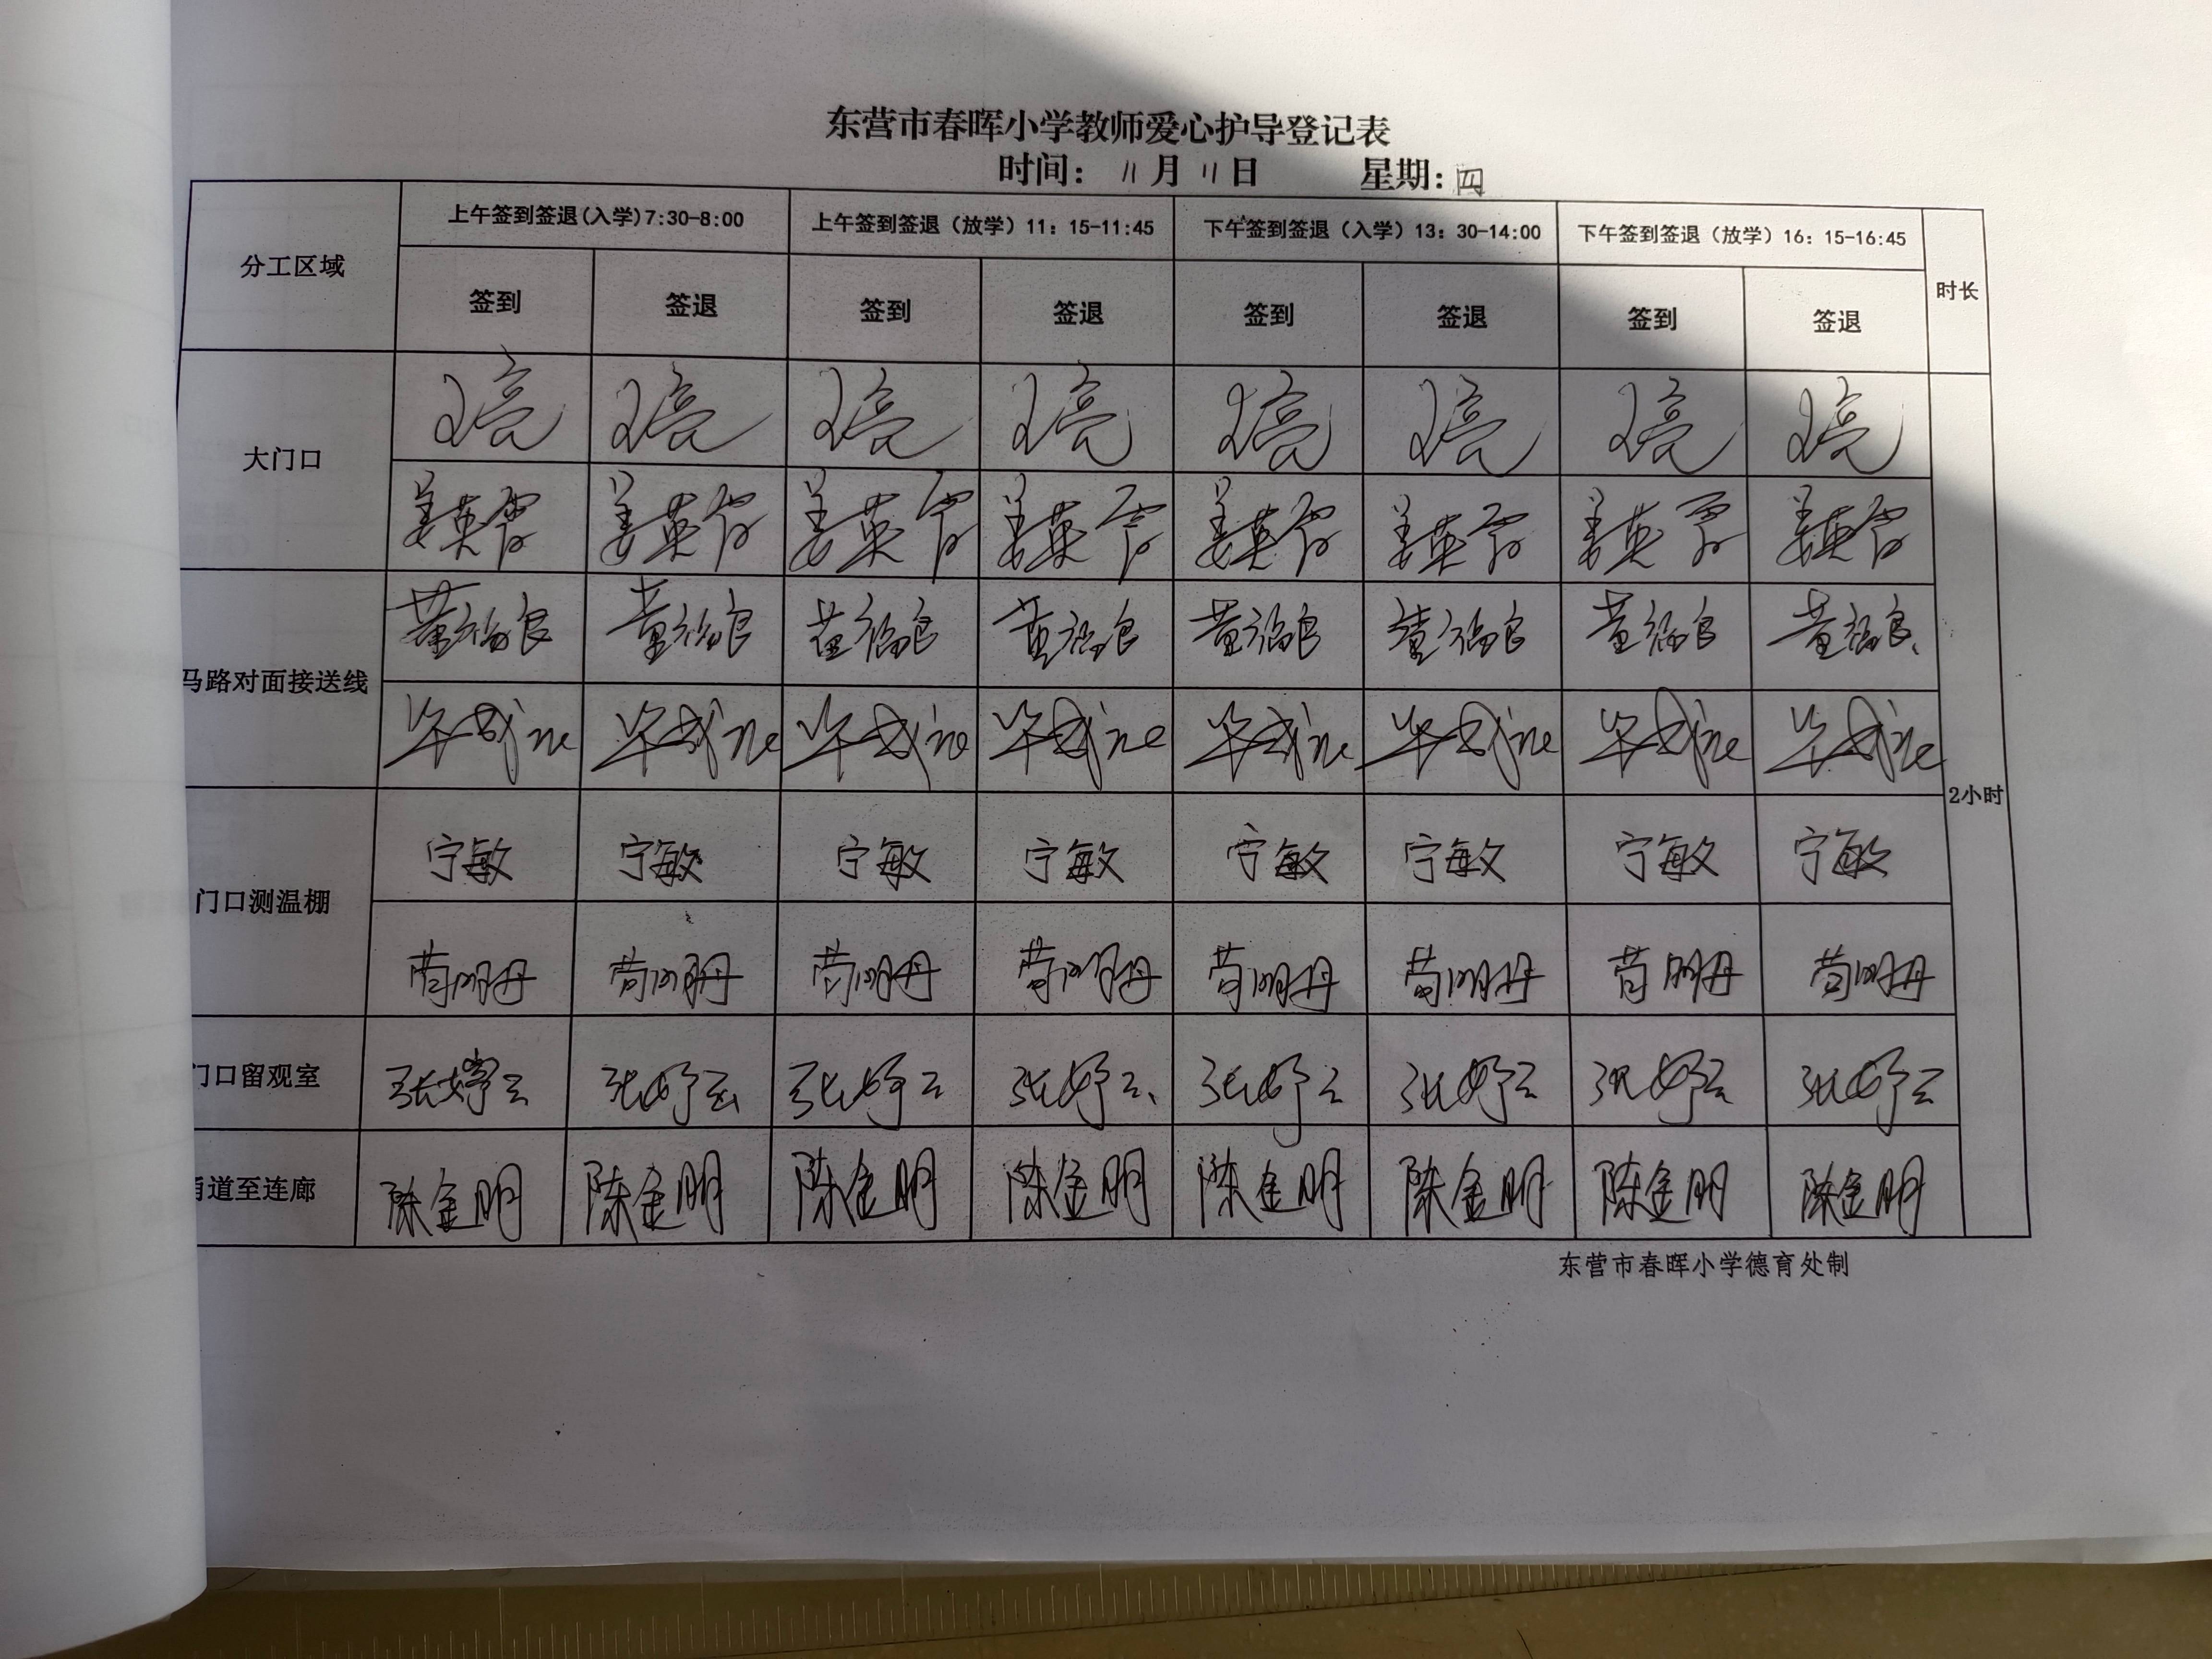 东营市春晖小学教师爱心护导登记表
时间： 11月11日 星期：四
分工区域 上午签到签退(入学)7:30-8:00 上午签到签退（放学）11：15-11:45 下午签到签退（入学）13：30-14:00 下午签到签退（放学）16：15-16:45 时长
签到 签退 签到 签退 签到 签退 签到 签退
大门口
姜英霄 姜英霄 姜英霄 姜英霄 姜英霄 姜英霄 姜英霄 姜英霄
董福良 董福良 董福良 董福良 董福良 董福良 董福良 董福良
马路对面接送线
2小时
宁敏 宁敏 宁敏 宁敏 宁敏 宁敏 宁敏 宁敏
门口测温棚
苟明丹 苟明丹 苟明丹 苟明丹 苟明丹 苟明丹 苟明丹 苟明丹
门口留观室 张婷云 张婷云 张婷云 张婷云 张婷云 张婷云 张婷云 张婷云
道至连廊 陈金明 陈金明 陈金明 陈金明 陈金明 陈金明 陈金明 陈金明
东营市春晖小学德育处制